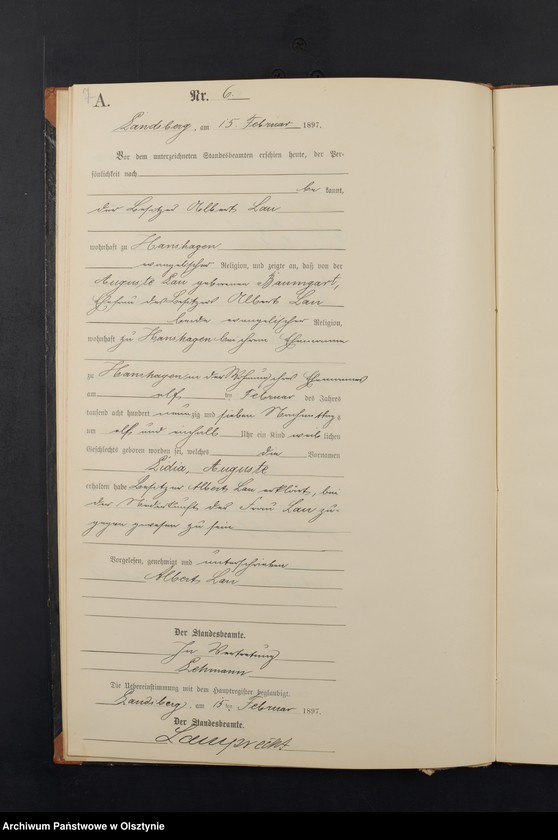 7 A. Nr. 6.
Landsberg, am 15 Februar 1897.
Vor dem unterzeichneten Standesbeamten erschien heute, der Per-
sönlichkeit nach
be kannt,
der Besitzer Albert Lau
wohnhaft zu Hanshagen
evangelischer Religion, und zeigte an, daß von der
Auguste Lau geborenen Baumgart,
Ehefrau des Besitzers Albert Lau
beide evangelischer Religion,
wohnhaft zu Hanshagen bei ihrem Ehemanne
zu Hanshagen in der Wohnung ihres Ehemannes
am elf ten Februar des Jahres
tausend acht hundert neunzig und sieben Nachmittags
um elf und einhalb Uhr ein Kind weib lichen
Geschlechts geboren worden sei, welches die Vornamen
Lidia, Auguste
erhalten habe Besitzer Albert Lau erklärt, bei
der Niederkunft der Frau Lau zu-
gegen gewesen zu sein
Vorgelesen, genehmigt und unterschrieben
Albert Lau
Der Standesbeamte.
In Vertretung
Lehmann
Die Uebereinstimmung mit dem Hauptregister beglaubigt.
Landsberg, am 15 ten Februar 1897.
Der Standesbeamte.
Lamprecht
Archiwum Państwowe w Olsztynie